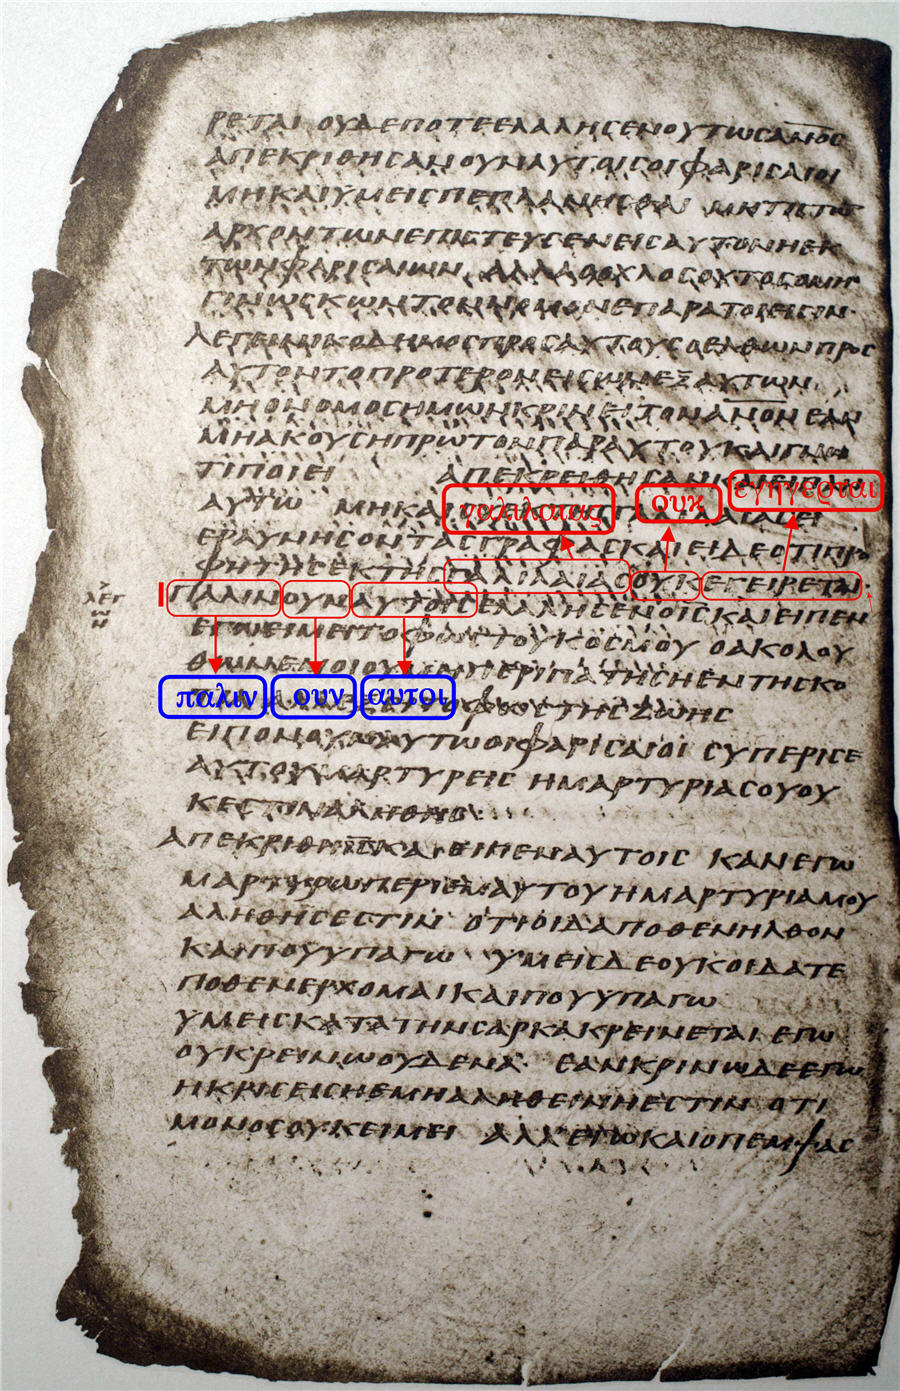 ΡΕΤΑΙ ΟΥΔΕΠΟΤΕΕΛΑΛΗϹΕΝΟΥΤΩϹΑΝΟϹ
ΑΠΕΚΡΙΘΗϹΑΝΟΥΝΑΥΤΟΙϹΟΙΦΑΡΙϹΑΙΟΙ
ΜΗΚΑΙΥΜΕΙϹΠΕΠΛΑΝΗϹΘΑΙ ΜΗΤΙϹ
ΑΡΧΟΝΤΩΝΕΠΙϹΤΕΥϹΕΝΕΙϹΑΥΤΟΝΗΕΚ
ΤΩΝΦΑΡΙϹΑΙΩΝ ΑΛΛΑΟΟΧΛΟϹΟΥΤΟϹΟΜΗ
ΓΙΝΩϹΚΩΝΤΟΝΝΟΜΟΝΕΠΑΡΑΤΟΙΕΙϹΙΝ·
ΛΕΓΕΙΝΙΚΟΔΗΜΟϹΠΡΟϹΑΥΤΟΥϹΟΕΛΘΩΝΠΡΟϹ
ΑΥΤΟΝΤΟΠΡΟΤΕΡΟΝΕΙϹΩΝΕΞΑΥΤΩΝ
ΜΗΟΝΟΜΟϹΗΜΩΝΚΡΙΝΕΙΤΟΝΑΝΟΝΕΑΝ
ΜΗΑΚΟΥϹΗΠΡΩΤΟΝΠΑΡΑΥΤΟΥΚΑΙΓΝΩ
ΤΙΠΟΙΕΙ ΑΠΕΚΡΕΙΘΗϹΑΝΚΑΙΕΙΠΑΝ
ΑΥΤΩ ΜΗΚΑΙ
γαλιλαιας ουκ εγηγερται
ΕΡΑΥΝΗϹΟΝΤΑϹΓΡΑΦΑϹΚΑΙΕΙΔΕΟΤΙΠΡΟ
ΦΗΤΗϹΕΚΤΗϹΓΑΛΙΛΑΙΑϹΟΥΚΕΓΕΙΡΕΤΑΙ·
ΠΑΛΙΝΟΥΝΑΥΤΟΙϹΕΛΑΛΗϹΕΝΟΙϹΚΑΙΕΙΠΕΝ
ΕΓΩΕΙΜΕΙΤΟΦΩϹΤΟΥΚΟϹΜΟΥ ΟΑΚΟΛΟΥ
ΘΩΝΕΜΟΙΟΥΜΗΠΕΡΙΠΑΤΗϹΗΕΝΤΗϹΚΟ
παλιν ουν αυτοι
ΦΩϹΤΗϹΖΩΗϹ
ΕΙΠΟΝΟΥΝΑΥΤΩΟΙΦΑΡΙϹΑΙΟΙ ϹΥΠΕΡΙϹΕ
ΑΥΤΟΥΜΑΡΤΥΡΕΙϹ ΗΜΑΡΤΥΡΙΑϹΟΥΟΥ
ΚΕϹΤΙΝΑΛΗΘΗϹ
ΑΠΕΚΡΙΘΗΙϹΚΑΙΕΙΠΕΝΑΥΤΟΙϹ ΚΑΝΕΓΩ
ΜΑΡΤΥΡΩΠΕΡΙΕΜΑΥΤΟΥΗΜΑΡΤΥΡΙΑΜΟΥ
ΑΛΗΘΗϹΕϹΤΙΝ ΟΤΙΟΙΔΑΠΟΘΕΝΗΛΘΟΝ
ΚΑΙΠΟΥΥΠΑΓΩ ΥΜΕΙϹΔΕΟΥΚΟΙΔΑΤΕ
ΠΟΘΕΝΕΡΧΟΜΑΙΚΑΙΠΟΥΥΠΑΓΩ
ΥΜΕΙϹΚΑΤΑΤΗΝϹΑΡΚΑΚΡΕΙΝΕΤΑΙ ΕΓΩ
ΟΥΚΡΕΙΝΩΟΥΔΕΝΑ· ΕΑΝΚΡΙΝΩΔΕΕΓΩ
ΗΚΡΙϹΕΙϹΗΕΜΗΑΛΗΘΕΙΝΗΕϹΤΙΝ ΟΤΙ
ΜΟΝΟϹΟΥΚΕΙΜΕΙ ΑΛΛΕΓΩΚΑΙΟΠΕΜΨΑϹ